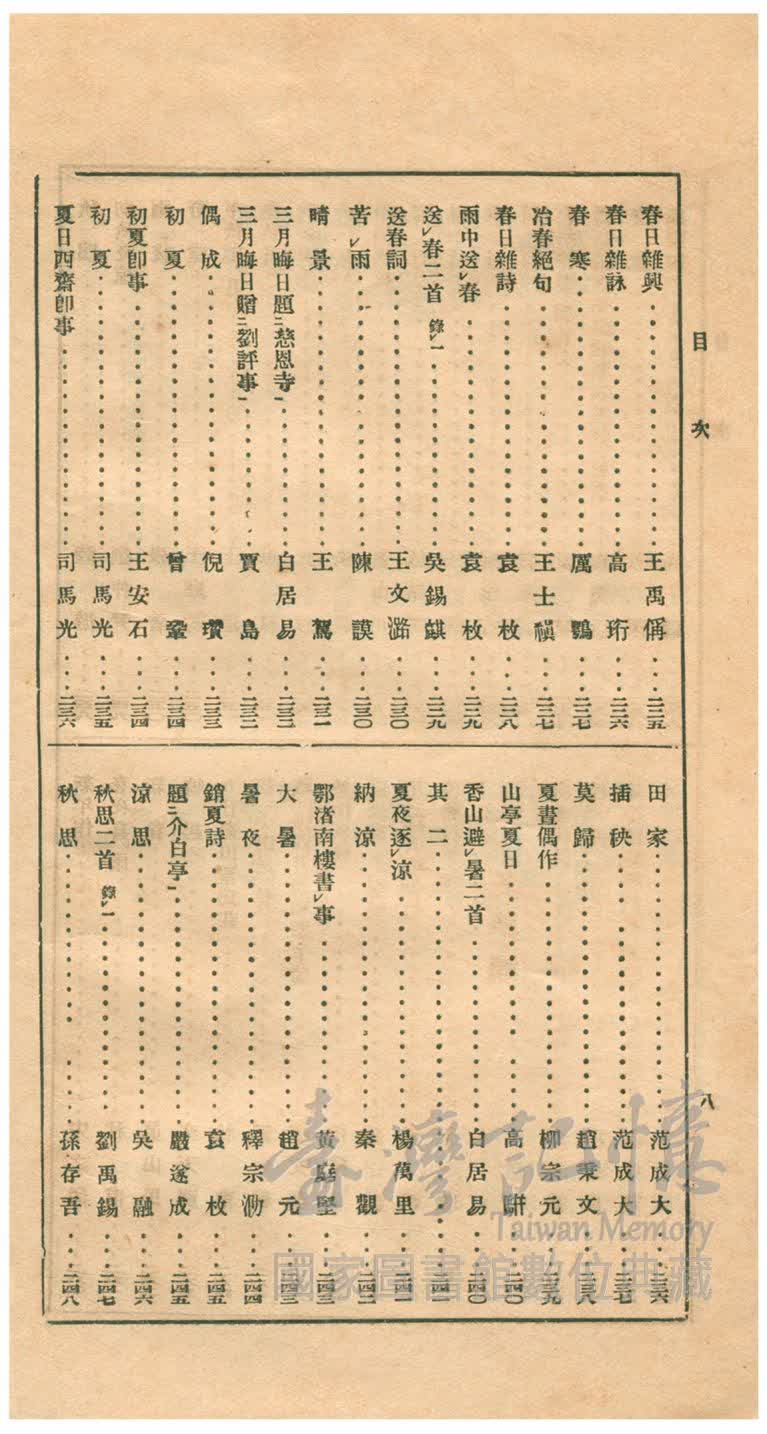 目次
八
春日雜興……王禹偁……二二五
春日雜詠……高珩……二二六
春寒……厲鶚……二二七
冶春絕句……王士禛……二二七
春日雜詩……袁枚……二二八
雨中送レ春……袁枚……二二九
送レ春二首 錄レ一……吳錫麒……二二九
送春詞……王文潞……二三〇
苦レ雨……陳謨……二三〇
晴景……王駕……二三一
三月晦日題二慈恩寺一……白居易……二三二
三月晦日贈二劉評事一……賈島……二三二
偶成……倪瓚……二三三
初夏……曾鞏……二三四
初夏卽事……王安石……二三四
初夏……司馬光……二三五
夏日西齋卽事……司馬光……二三六
田家……范成大……二三六
插秧……范成大……二三七
莫歸……趙秉文……二三八
夏晝偶作……柳宗元……二三九
山亭夏日……高駢……二四〇
香山避レ暑二首……白居易……二四〇
其二……二四一
夏夜逐レ涼……楊萬里……二四一
納涼……秦觀……二四二
鄂渚南樓書レ事……黃庭堅……二四三
大暑……趙元……二四三
暑夜……釋宗泐……二四四
銷夏詩……袁枚……二四五
題二介白亭一……嚴遂成……二四五
涼思……吳融……二四六
秋思二首 錄レ一……劉禹錫……二四七
秋思……孫存吾……二四八
臺灣記憶
Taiwan Memory
國家圖書館數位典藏